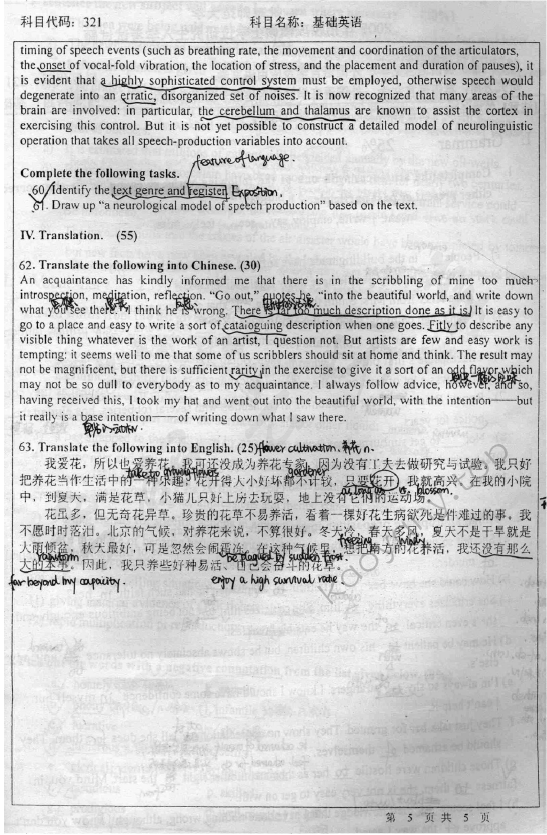 科目代码：321 科目名称：基础英语
timing of speech events (such as breathing rate, the movement and coordination of the articulators,
the onset of vocal-fold vibration, the location of stress, and the placement and duration of pauses), it
is evident that a highly sophisticated control system must be employed, otherwise speech would
degenerate into an erratic, disorganized set of noises. It is now recognized that many areas of the
brain are involved: in particular, the cerebellum and thalamus are known to assist the cortex in
exercising this control. But it is not yet possible to construct a detailed model of neurolinguistic
operation that takes all speech-production variables into account.
feature of language.
Complete the following tasks.
60. Identify the text genre and register. Exposition.
61. Draw up “a neurological model of speech production” based on the text.
IV. Translation. (55)
62. Translate the following into Chinese. (30)
An acquaintance has kindly informed me that there is in the scribbling of mine too much
introspection, meditation, reflection. “Go out,” quotes he, “into the beautiful world, and write down
what you see there.” I think he is wrong. There is far too much description done as it is. It is easy to
go to a place and easy to write a sort of cataloguing description when one goes. Fitly to describe any
visible thing whatever is the work of an artist, I question not. But artists are few and easy work is
tempting: it seems well to me that some of us scribblers should sit at home and think. The result may
not be magnificent, but there is sufficient rarity in the exercise to give it a sort of an odd flavor which
may not be so dull to everybody as to my acquaintance. I always follow advice, however, and so,
having received this, I took my hat and went out into the beautiful world, with the intention——but
it really is a base intention——of writing down what I saw there.
63. Translate the following into English. (25) flower cultivation. 养花 n.
我爱花，所以也爱养花。我可还没成为养花专家，因为没有工夫去做研究与试验。我只好
take to growing flowers gardener
把养花当作生活中的一种乐趣，花开得大小好坏都不计较，只要花开，我就高兴。在我的小院
as long as blossom.
中，到夏天，满是花草，小猫儿只好上房去玩耍，地上没有它们的运动场。
花虽多，但无奇花异草。珍贵的花草不易养活，看着一棵好花生病欲死是件难过的事。我
不愿时时落泪。北京的气候，对养花来说，不算很好。冬天冷，春天多风，夏天不是干旱就是
rainstorm freezing windy
大雨倾盆，秋天最好，可是忽然会闹霜冻。在这种气候里，想把南方的花养活，我还没有那么
be plagued by sudden frost.
大的本事。因此，我只养些好种易活、自己会奋斗的花草。
far beyond my capacity. enjoy a high survival rate.
第 5 页 共 5 页